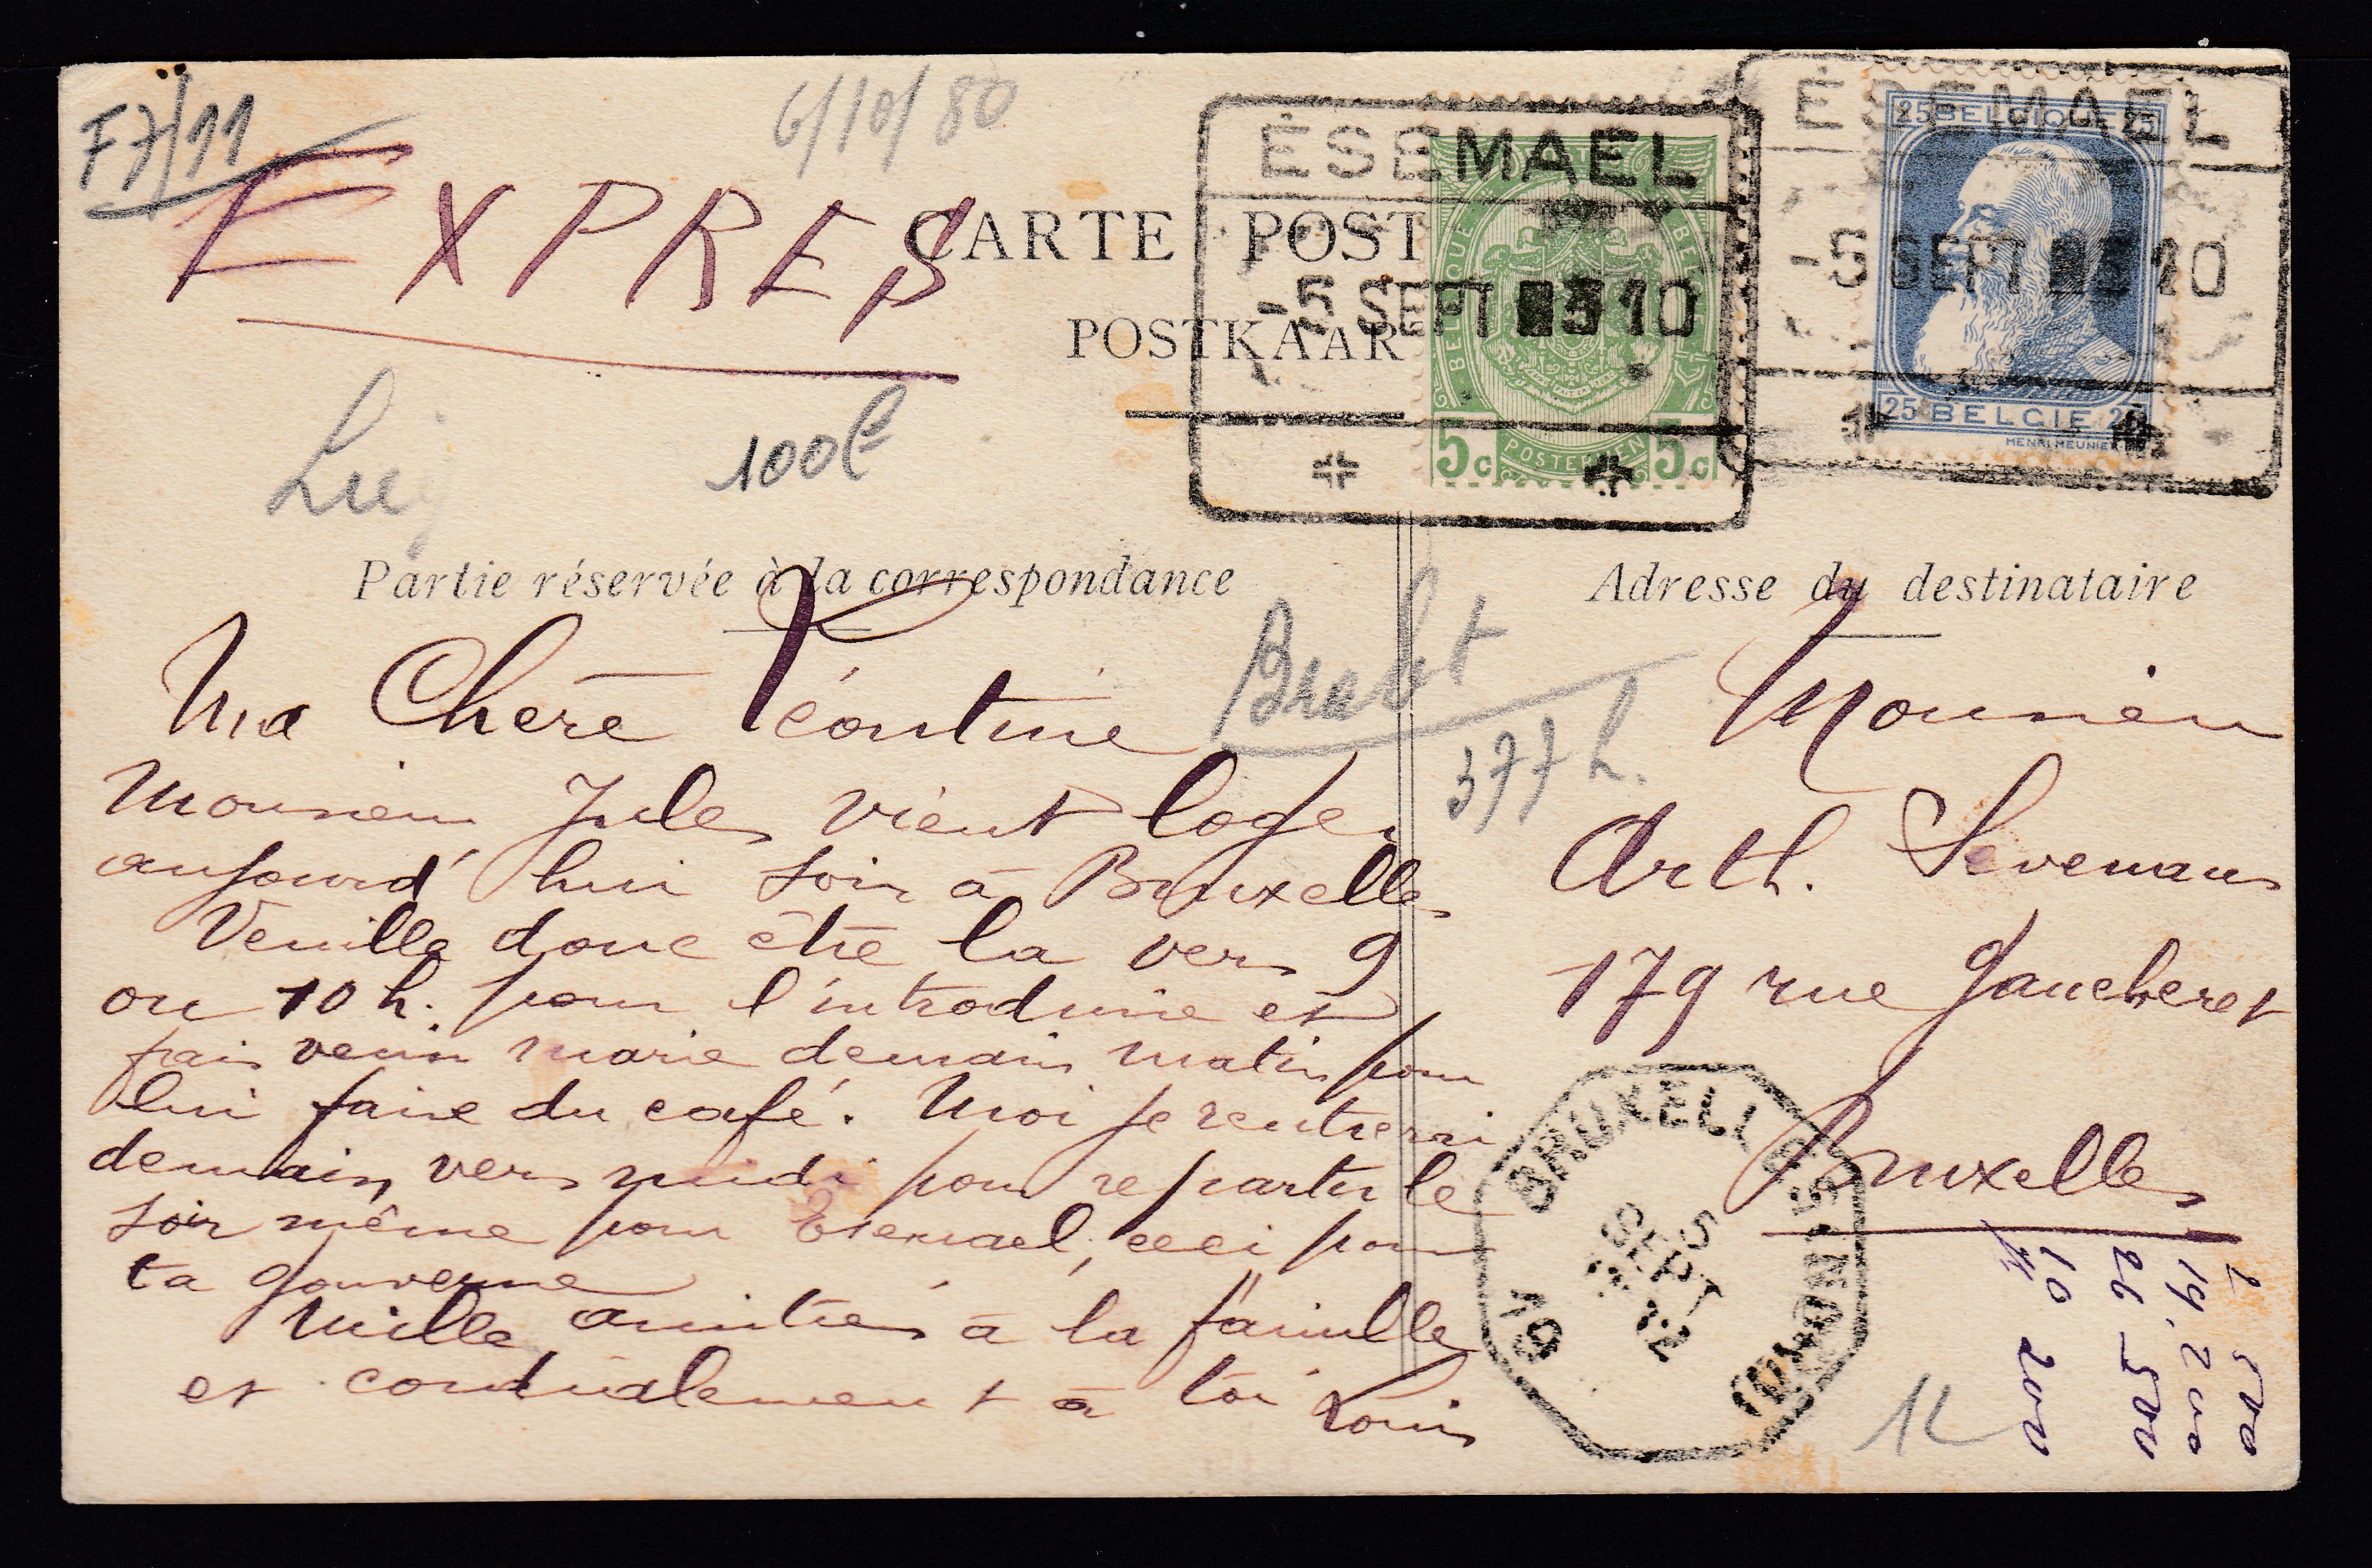 F7/11
6/10/80
EXPRES
CARTE POST
POSTKAAR
ÉSEMAEL
-5 SEPT 3 10
BELGIQUE BELGIE
5c POSTERIJEN 5c
ÉSEMAEL
-5 SEPT 10
25 BELGIQUE 25
25 BELGIE 25
HENRI MEUNIER
100
Partie réservée à la correspondance
Adresse du destinataire
Ma Chère Léontine
Monsieur Jules vient loger
aujourd'hui soir à Bruxelles
Veuille donc être la vers 9
ou 10 h. pour l'introduire et
fais venir Marie demain matin pour
lui faire du café. Moi je rentrerai
demain vers midi pour repartir le
soir même pour Esemael, ceci pour
ta gouverne
Mille amitiés à la famille
et cordialement à toi Louis
Brabt
377 h.
Monsieur
Arth. Sevenans
179 rue Gaucheret
Bruxelles
BRUXELLES
5
SEPT
12
19
12
2 500
19.200
26 500
10 200